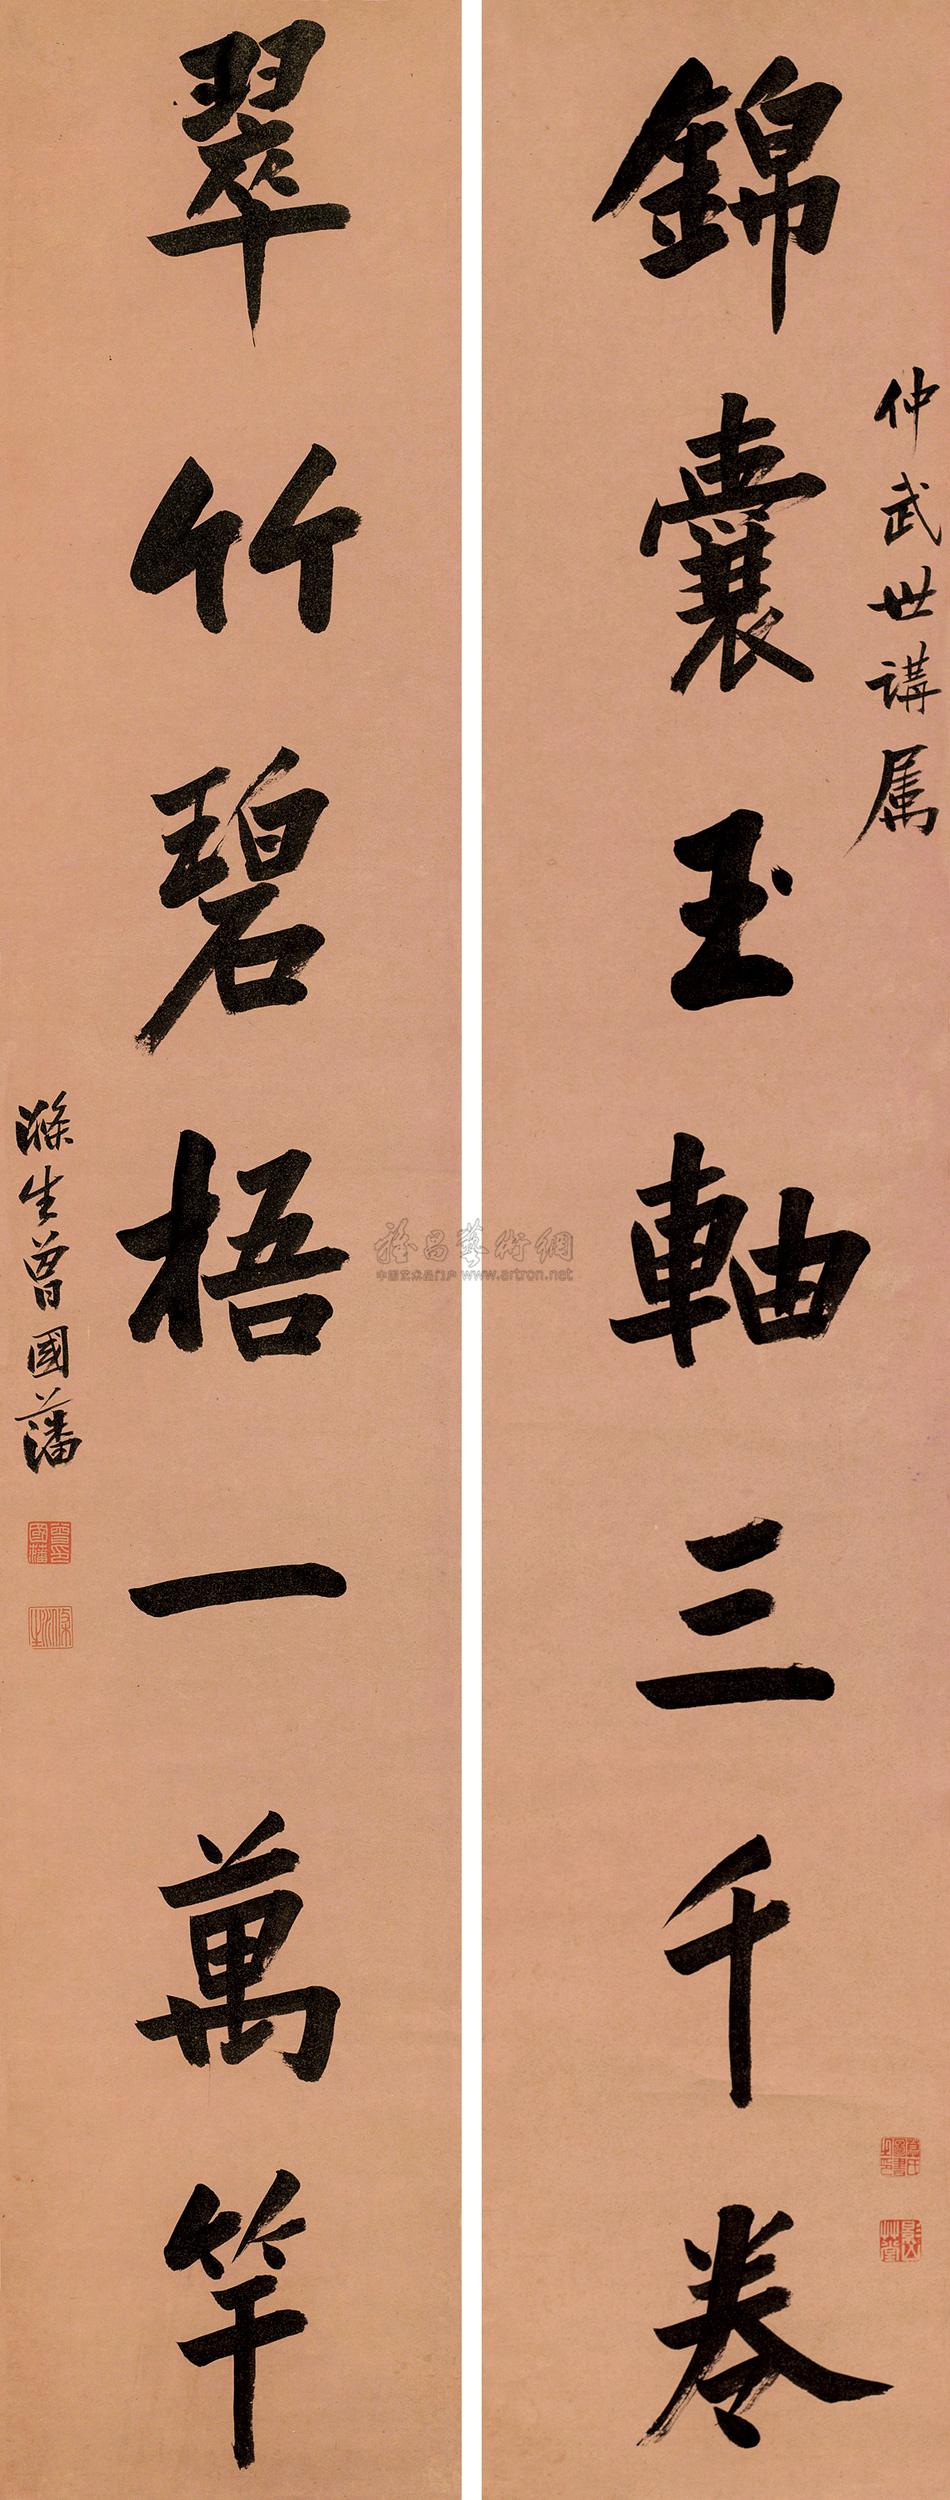 仲武世講属
錦囊玉軸三千卷
翠竹碧梧一萬竿
滌生曾國藩
曾國藩印
滌生
雅昌藝術網
中国艺术品门户 www.artron.net